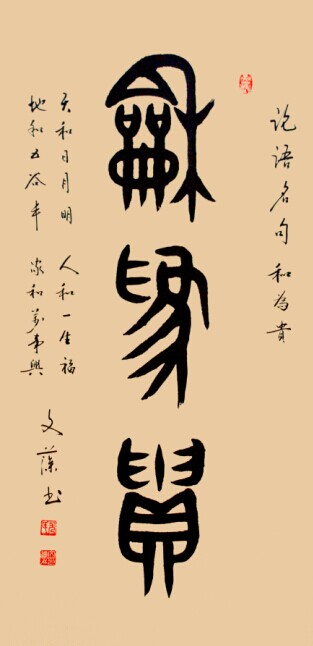 论语名句 和為貴
龢為貴
天和日月明 人和一生福
地和五谷丰 家和萬事興
文藻书